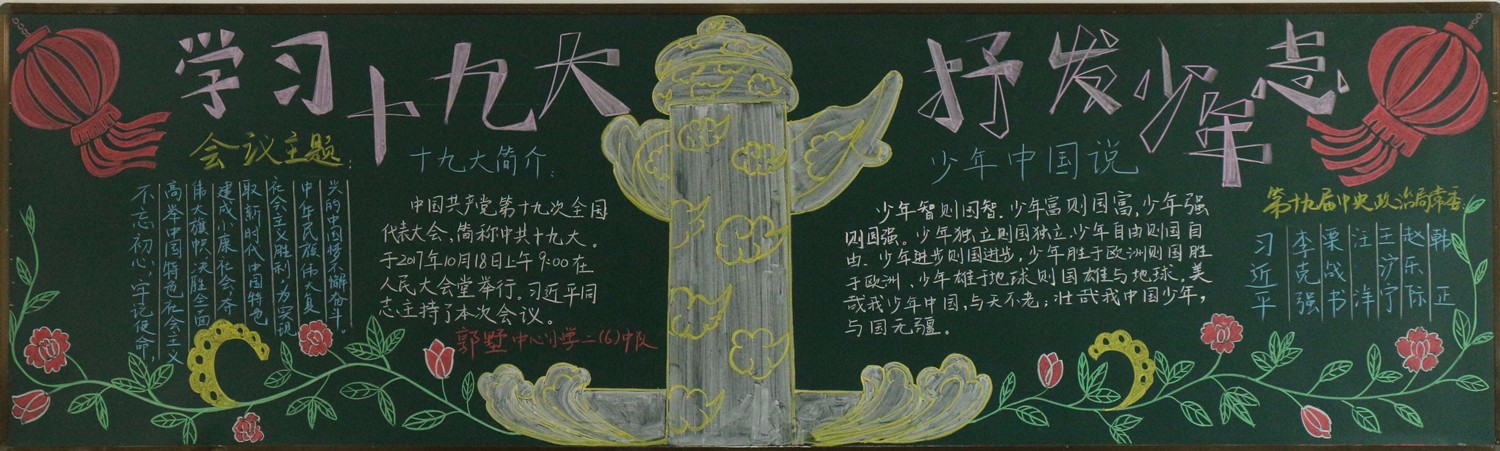 学习十九大
抒发少年志
会议主题:
不忘初心,牢记使命
高举中国特色社会主义
伟大旗帜,决胜全面
建成小康社会,夺
取新时代中国特色
社会主义胜利,为实现
中华民族伟大复
兴的中国梦不懈奋斗。
十九大简介:
中国共产党第十九次全国
代表大会,简称中共十九大。
于2017年10月18日上午9:00在
人民大会堂举行。习近平同
志主持了本次会议。
郭墅中心小学二(6)中队
少年中国说
少年智则国智.少年富则国富,少年强
则国强。少年独立则国独立.少年自由则国自
由.少年进步则国进步,少年胜于欧洲则国胜
于欧洲、少年雄于地球则国雄与地球.美
哉我少年中国,与天不老;壮哉我中国少年,
与国无疆。
第十九届中央政治局常委:
习近平
李克强
栗战书
汪洋
王沪宁
赵乐际
韩正